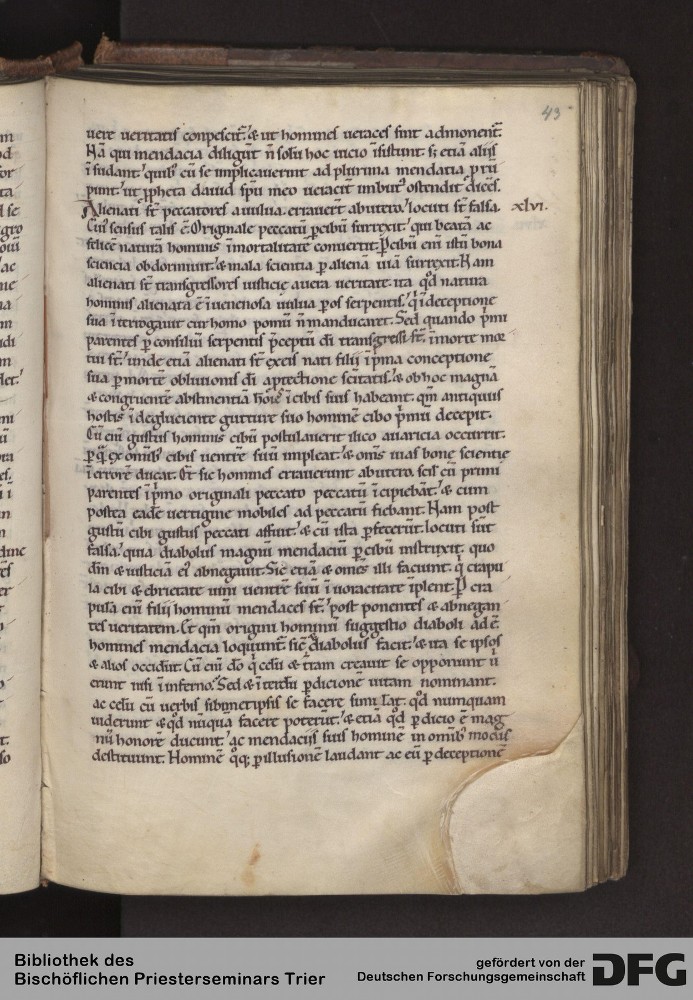 43
uere ueritatis conpescit. & ut homines ueraces sint admonent̄.
Nā qui mendacia diligūt n̄ solū hoc uicio īsistunt. s; etiā aliis
īsudant. quib; cū se implicauerint ad plurima mendacia prū
punt. ut ꝓpheta dauid spū meo ueracit̄ imbut' ostendit dicēs.
Alienati sт̄ peccatores a uulua. errauerт̄ ab utero. locuti sт̄ falsa. xlvi.
Cui' sensus talis ē. Originale peccatū ꝑ cibū surrexit. qui beatā ac
felicē naturā hominis īmortalitatē conuertit. Per cibū eni istū bona
sciencia obdormiuit. & mala scientia ꝑ alienā uiā surrexit. Nam
alienati sт̄ transgressores iusticie auera ueritate. ita qd̄ natura
hominis alienata ē ī uenenosa uulua ꝑ os serpentis. q̄ ī deceptione
sua īterrogauit cur homo pomū n̄ manducaret. Sed quando p̄mi
parentes ꝑ consiliū serpentis p̄ceptū dī transgressi sт̄. ī morte mor
tui sт̄. unde etiā alienati sт̄ ex eis nati filii ī p̄ma conceptione
sua ꝑ mortē obliuionis dī
& congruentē abstinentiā hoīes ī cibis suis habeant. qm̄ antiquus
hostis ī degluciente gutture suo hominē cibo p̄mū decepit.
Cū eni gustus hominis cibū postulauerit ilico auaricia occurrit.
ꝑ q̄ ex omib; cibis uentrē suū impleat. & om̄s uias bone scientie
ī errorē ducat. Et sic homines errauerunt ab utero. scil' cū primi
parentes ī p̄mo originali peccato peccatū īcipiebāt. & cum
postea eadē uertigine mobiles ad peccatū fiebant. Nam post
gustū cibi gustus peccati affuit. & cū ista ꝑfecerūt. locuti sūt
falsa. quia diabolus magnū mendaciū ꝑ cibū instruxit. quo
dm̄ & iusticiā ei' abnegauit. Sic etiā & om̄es illi faciunt. q̄ crapu
la cibi & ebrietate uini uentrē suū ī uoracitate īplent. Per cra
pulā eni filii hominū mendaces sт̄. post ponentes & abnegan
tes ueritatem. Et qm̄ origini hominū suggestio diaboli adē
homines mendacia loquunt̄. sic diabolus facit. & ita se ipsos
& alios occidūt. Cū eni dō q̄ celū & trā creauit se opponunt ū
erunt nisi ī inferno. Sed & ī terdū ꝑdicionē uitam nominant.
ac celū cū uerbis sibimetipsis se facere simulāt. qd̄ numquam
uiderunt & qd̄ nūqua facere poterūt. & etiā qd̄ ꝑdicio ē mag
nū honorē ducunt. ac mendaciis suis hominē in omib; modis
destituunt. Hominē q̄q; ꝑ illusionē laudant ac eū ꝑ deceptionē
Bibliothek des
Bischöflichen Priesterseminars Trier
gefördert von der
Deutschen Forschungsgemeinschaft
DFG